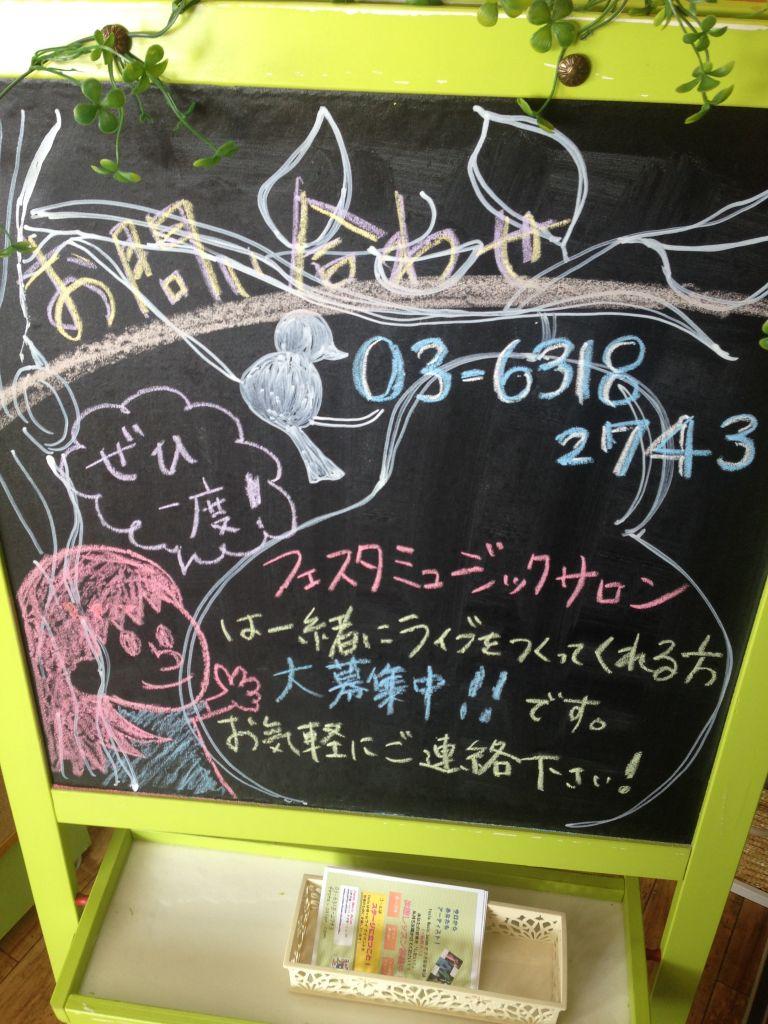 お問い合わせ
03-6318
2743
ぜひ
一度!
フェスタミュージックサロン
は一緒にライブをつくってくれる方
大募集中!!です。
お気軽にご連絡下さい!